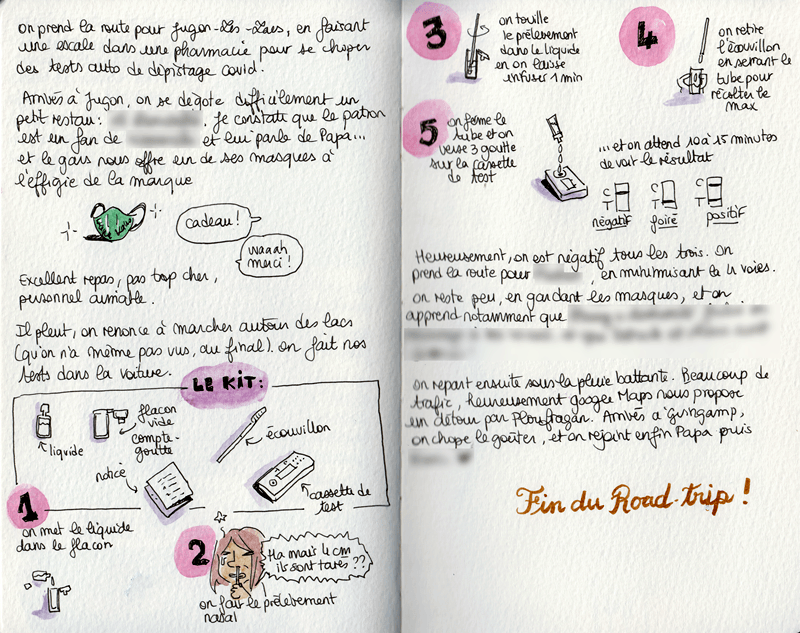 on prend la route pour Jugon-Les-Lacs, en faisant
une escale dans une pharmacie pour se choper
des tests auto de dépistage covid.
Arrivés à Jugon, on se dégote difficilement un
petit restau:
. Je constate que le patron
est un fan de
et lui parle de Papa...
et le gars nous offre un de ses masques à
l'effigie de la marque
cadeau !
waaah
merci !
Excellent repas, pas trop cher,
personnel aimable.
Il pleut, on renonce à marcher autour des lacs
(qu'on n'a même pas vus, au final). On fait nos
tests dans la voiture.
LE KIT:
liquide
flacon
vide
compte-
goutte
écouvillon
notice
cassette de
test
1
on met le liquide
dans le flacon
2
Ha mais 4 cm
ils sont tarés ??
on fait le prélèvement
nasal
3
on touille
le prélèvement
dans le liquide
en on laisse
infuser 1 min
4
on retire
l'écouvillon
en serrant le
tube pour
récolter le
max
5
on ferme le
tube et on
verse 3 goutte
sur la cassette
de test
...et on attend 10 à 15 minutes
de voir le résultat
C
T
négatif
C
T
foiré
C
T
positif
Heureusement, on est négatif tous les trois. On
prend la route pour
, en minimisant la 4 voies.
on reste peu, en gardant les masques, et on
apprend notamment que
on repart ensuite sous la pluie battante. Beaucoup de
trafic, heureusement google Maps nous propose
un détour par Ploufragan. Arrivés à Guingamp,
on chope le goûter, et on rejoint enfin Papa puis
Fin du Road-trip !